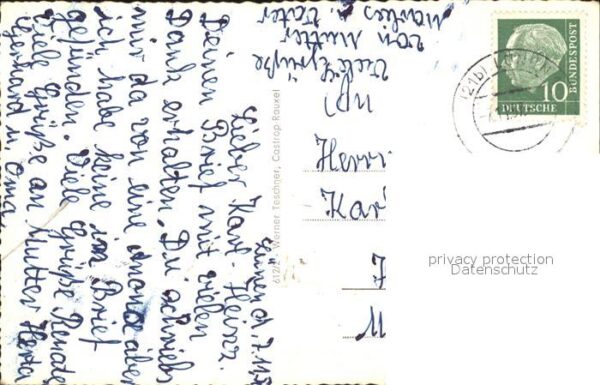 Lünen d. 7.11.5
Lieber Karl-Heinz.
Deinen Brief mit vielen
Dank erhalten. Du schriebs
mir da von eine Annonce aber
ich habe keine im Brief
gefunden. Viele Grüße Renate
Viele Grüße an Mutter Herta
Gerhard u. Oma
Viele Grüße
von Mutter
u. Vater
Herrn
Kar
J
612/2 Werner Teschner, Castrop Rauxel
10
DEUTSCHE
BUNDESPOST
(21b)
privacy protection
Datenschutz